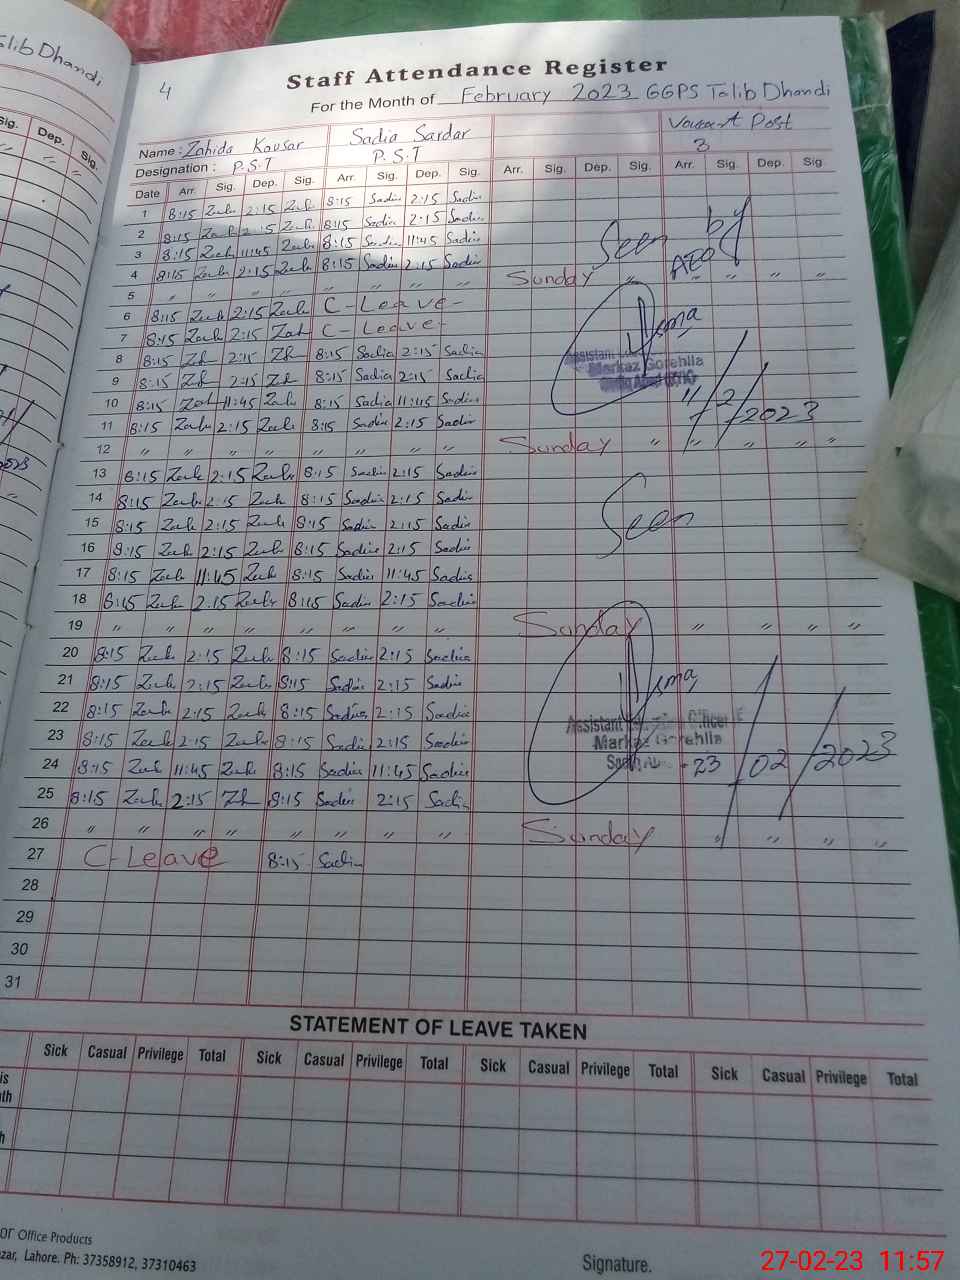 alib Dhandi
4
Staff Attendance Register
For the Month of February 2023 GGPS Talib Dhandi
Name : Zahida Kousar Sadia Sardar Vacant Post
Designation : P.S.T P.S.T 3
Sig. Dep. Sig.
Date Arr. Sig. Dep. Sig. Arr. Sig. Dep. Sig. Arr. Sig. Dep. Sig. Arr. Sig. Dep. Sig.
1 8:15 Zauh 2:15 Zauh 8:15 Sadia 2:15 Sadia
2 8:15 Zauh 2:15 Zauh 8:15 Sadia 2:15 Sadia
3 8:15 Zauh 11:45 Zauh 8:15 Sadia 11:45 Sadia Seen by
4 8:15 Zauh 2:15 Zauh 8:15 Sadia 2:15 Sadia AEO
5 " " " " " " " " Sunday " " " " "
6 8:15 Zauh 2:15 Zauh C-Leave-
7 8:15 Zauh 2:15 Zah C-Leave- Asma
8 8:15 Zh 2:15 Zh 8:15 Sadia 2:15 Sadia Assistant
Markaz Gorehlla
9 8:15 Zh 2:15 Zh 8:15 Sadia 2:15 Sadia
10 8:15 Zah 11:45 Zauh 8:15 Sadia 11:45 Sadia 11/2/2023
11 8:15 Zauh 2:15 Zauh 8:15 Sadia 2:15 Sadia
12 " " " " " " " " Sunday " " " " "
13 8:15 Zauh 2:15 Zauh 8:15 Sadia 2:15 Sadia
14 8:15 Zauh 2:15 Zauh 8:15 Sadia 2:15 Sadia
15 8:15 Zauh 2:15 Zauh 8:15 Sadia 2:15 Sadia Seen
16 8:15 Zauh 2:15 Zauh 8:15 Sadia 2:15 Sadia
17 8:15 Zauh 11:45 Zauh 8:15 Sadia 11:45 Sadia
18 8:15 Zauh 2:15 Zauh 8:15 Sadia 2:15 Sadia
19 " " " " " " " " Sunday " " " "
20 8:15 Zauh 2:15 Zauh 8:15 Sadia 2:15 Sadia
21 8:15 Zauh 2:15 Zauh 8:15 Sadia 2:15 Sadia Asma
22 8:15 Zauh 2:15 Zauh 8:15 Sadia 2:15 Sadia Assistant Officer
23 8:15 Zauh 2:15 Zauh 8:15 Sadia 2:15 Sadia Markaz Gorehlla
24 8:15 Zauh 11:45 Zauh 8:15 Sadia 11:45 Sadia 23/02/2023
25 8:15 Zauh 2:15 Zh 8:15 Sadia 2:15 Sadia
26 " " " " " " " " Sunday " " " "
27 C-Leave 8:15 Sadia
28
29
30
31
STATEMENT OF LEAVE TAKEN
Sick Casual Privilege Total Sick Casual Privilege Total Sick Casual Privilege Total Sick Casual Privilege Total
is
th
h
or Office Products
zar, Lahore. Ph: 37358912, 37310463
Signature.
27-02-23 11:57